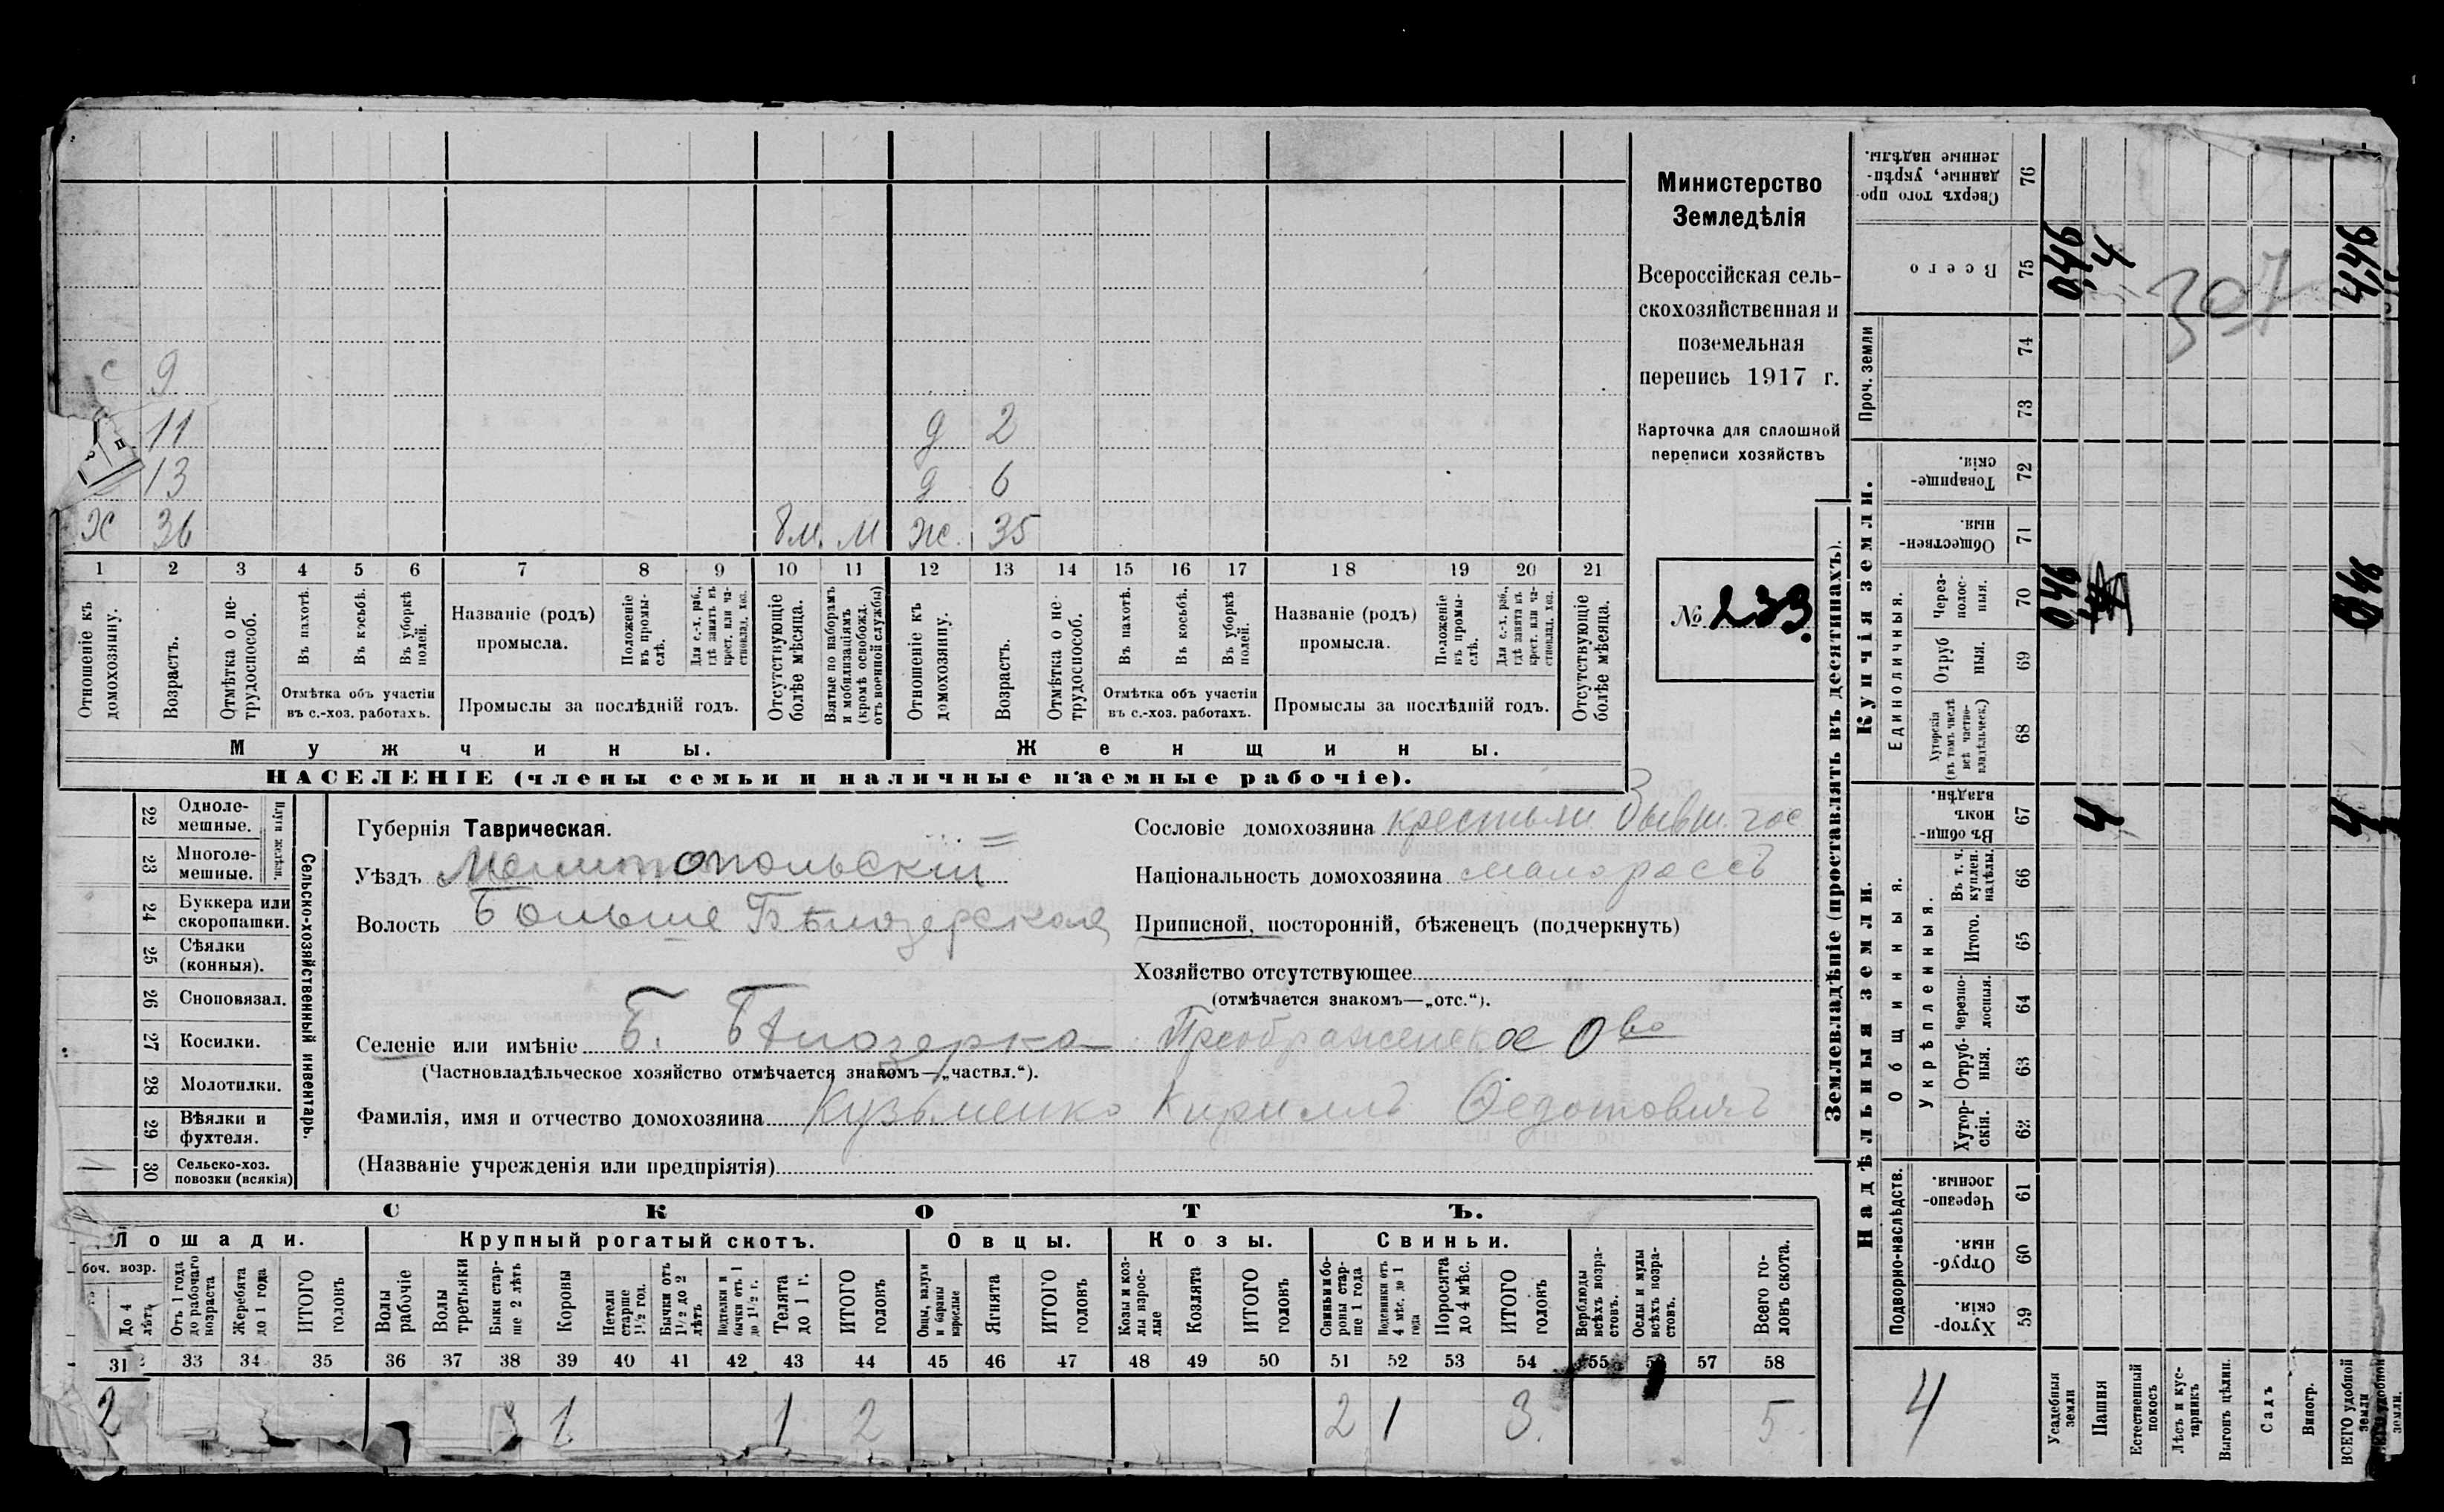 Министерство
Земледѣлія
Всероссійская сель-
скохозяйственная и
поземельная
перепись 1917 г.
Карточка для сплошной
переписи хозяйствъ
№ 233.
с 9
11 д 2
13 д 6
Х 36 8 м. М ж. 35
1 2 3 4 5 6 7 8 9 10 11 12 13 14 15 16 17 18 19 20 21
Отношеніе къ домохозяину.
Возрастъ.
Отмѣтка о не-трудоспособ.
Въ пахотѣ.
Въ косьбѣ.
Въ уборкѣ полей.
Отмѣтка объ участіи
въ с.-хоз. работахъ.
Названіе (родъ)
промысла.
Положеніе въ промы-слѣ.
Для с.-х. раб., гдѣ занятъ въ крест. или ча-стновлад. хоз.
Промыслы за послѣдній годъ.
Отсутствующіе болѣе мѣсяца.
Взятые по наборамъ и мобилизаціямъ (кромѣ освобожд. отъ военной службы)
Отношеніе къ домохозяину.
Возрастъ.
Отмѣтка о не-трудоспособ.
Въ пахотѣ.
Въ косьбѣ.
Въ уборкѣ полей.
Отмѣтка объ участіи
въ с.-хоз. работахъ.
Названіе (родъ)
промысла.
Положеніе въ промы-слѣ.
Для с.-х. раб., гдѣ занята въ крест. или ча-стновлад. хоз.
Промыслы за послѣдній годъ.
Отсутствующіе болѣе мѣсяца.
Мужчины. Женщины.
НАСЕЛЕНІЕ (члены семьи и наличные наемные рабочіе).
Сельско-хозяйственный инвентарь.
22 Одноле-мешные.
23 Многоле-мешные.
24 Буккера или скоропашки.
25 Сѣялки (конныя).
26 Сноповязал.
27 Косилки.
28 Молотилки.
29 Вѣялки и фухтеля.
30 Сельско-хоз. повозки (всякія)
Губернія Таврическая.
Уѣздъ Мелитопольскій
Волость Больше Бѣлозерская
Сословіе домохозяина крестьян. бывш. гос
Національность домохозяина малороссъ
Приписной, посторонній, бѣженецъ (подчеркнуть)
Хозяйство отсутствующее
(отмѣчается знакомъ—„отс.“).
Селеніе или имѣніе Б. Бѣлозерка Преображенское Ово
(Частновладѣльческое хозяйство отмѣчается знакомъ—„частвл.“).
Фамилія, имя и отчество домохозяина Кузьменко Кириллъ Федотовичъ
(Названіе учрежденія или предпріятія)
СКОТЪ.
Лошади. Крупный рогатый скотъ. Овцы. Козы. Свиньи.
боч. возр.
До 4 лѣтъ
Отъ 1 года до рабочаго возраста
Жеребята до 1 года
ИТОГО головъ
Волы рабочіе
Волы третьяки
Быки стар-ше 2 лѣтъ
Коровы
Нетели старше 1½ год.
Бычки отъ 1½ до 2 лѣтъ
Подтелки и бычки отъ 1 до 1½ г.
Телята до 1 г.
ИТОГО головъ
Овцы, валухи и бараны взрослые
Ягнята
ИТОГО головъ
Козы и коз-лы взрос-лые
Козлята
ИТОГО головъ
Свиньи и бо-ровы стар-ше 1 года
Подсвинки отъ 4 мѣс. до 1 года
Поросята до 4 мѣс.
ИТОГО головъ
Верблюды всѣхъ возра-стовъ.
Ослы и мулы всѣхъ возра-стовъ.
Всего го-ловъ скота.
31 33 34 35 36 37 38 39 40 41 42 43 44 45 46 47 48 49 50 51 52 53 54 55 57 58
2 1 1 2 2 1 3. 5
Землевладѣніе (проставлять въ десятинахъ).
Надѣльныя земли. Купчія земли. Проч. земли
Подворно-наслѣдств.
Общинныя.
Укрѣпленныя.
Единоличныя.
Хутор-скія. 59
Отруб-ныя. 60
Черезпо-лосныя. 61
Хутор-скія. 62
Отруб-ныя. 63
Черезпо-лосныя. 64
Итого. 65
Въ т. ч. куплен. надѣлы. 66
Въ общин-номъ владѣн. 67
Хуторскія (въ томъ числѣ всѣ частно-владѣльческ.) 68
Отруб ныя. 69
Через-полос-ныя. 70
Обществен-ныя. 71
Товарище-скія. 72
73
74
Всего 75
Сверхъ того про-данные, укрѣп-ленные надѣлы. 76
4
Усадебныя земли 0,46 0,46
Пашня 4 4
Естественный покосъ
Лѣсъ и кус-тарникъ
Выгонъ цѣлин.
Садъ
Виногр.
ВСЕГО удобной земли 4 0,46 4,46
307